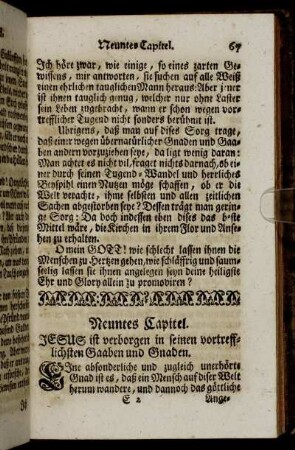 Neuntes Capitel. 67
Ich höre zwar, wie einige, so eines zarten Ge-
wissens, mir antworten, sie suchen auf alle Weiß
einen ehrlichen tauglichen Mann heraus: Aber jener
ist ihnen tauglich genug, welcher nur ohne Laster
sein Leben zugebracht, wann er schon wegen vor-
trefflicher Tugend nicht sonders berühmt ist.
Ubrigens, daß man auf dises Sorg trage,
daß einer wegen übernatürlicher Gnaden und Gaa-
ben andern vorzuziehen seye, da ligt wenig daran:
Man achtet es nicht vil, fraget nichts darnach, ob ei-
ner durch seinen Tugend-Wandel und herrliches
Beyspihl einen Nutzen möge schaffen, ob er die
Welt verachte, ihme selbsten und allen zeitlichen
Sachen abgestorben seye? Dessen trägt man gerin-
ge Sorg: Da doch indessen eben dises das beste
Mittel wäre, die Kirchen in ihrem Flor und Anse-
hen zu erhalten.
O mein GOTT! wie schlecht lassen ihnen die
Menschen zu Hertzen gehen, wie schläffrig und saum-
seelig lassen sie ihnen angelegen seyn deine heiligiste
Ehr und Glory allein zu promoviren?
Neuntes Capitel.
JESUS ist verborgen in seinen vortreff-
lichsten Gaaben und Gnaden.
EIne absonderliche und zugleich unerhörte
Gnad ist es, daß ein Mensch auf diser Welt
herum wandere, und dannoch das göttliche
E 2 Ange-